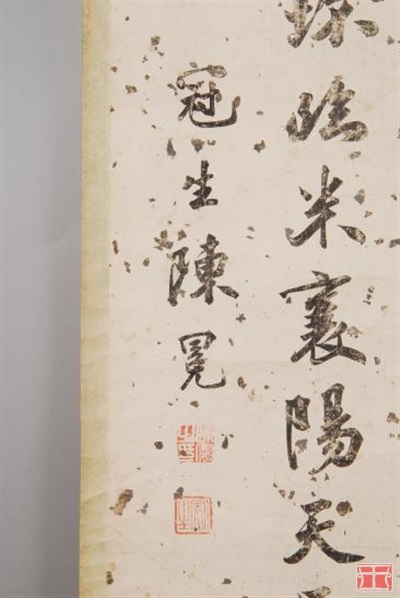 臨米襄陽天
冠生陳冕